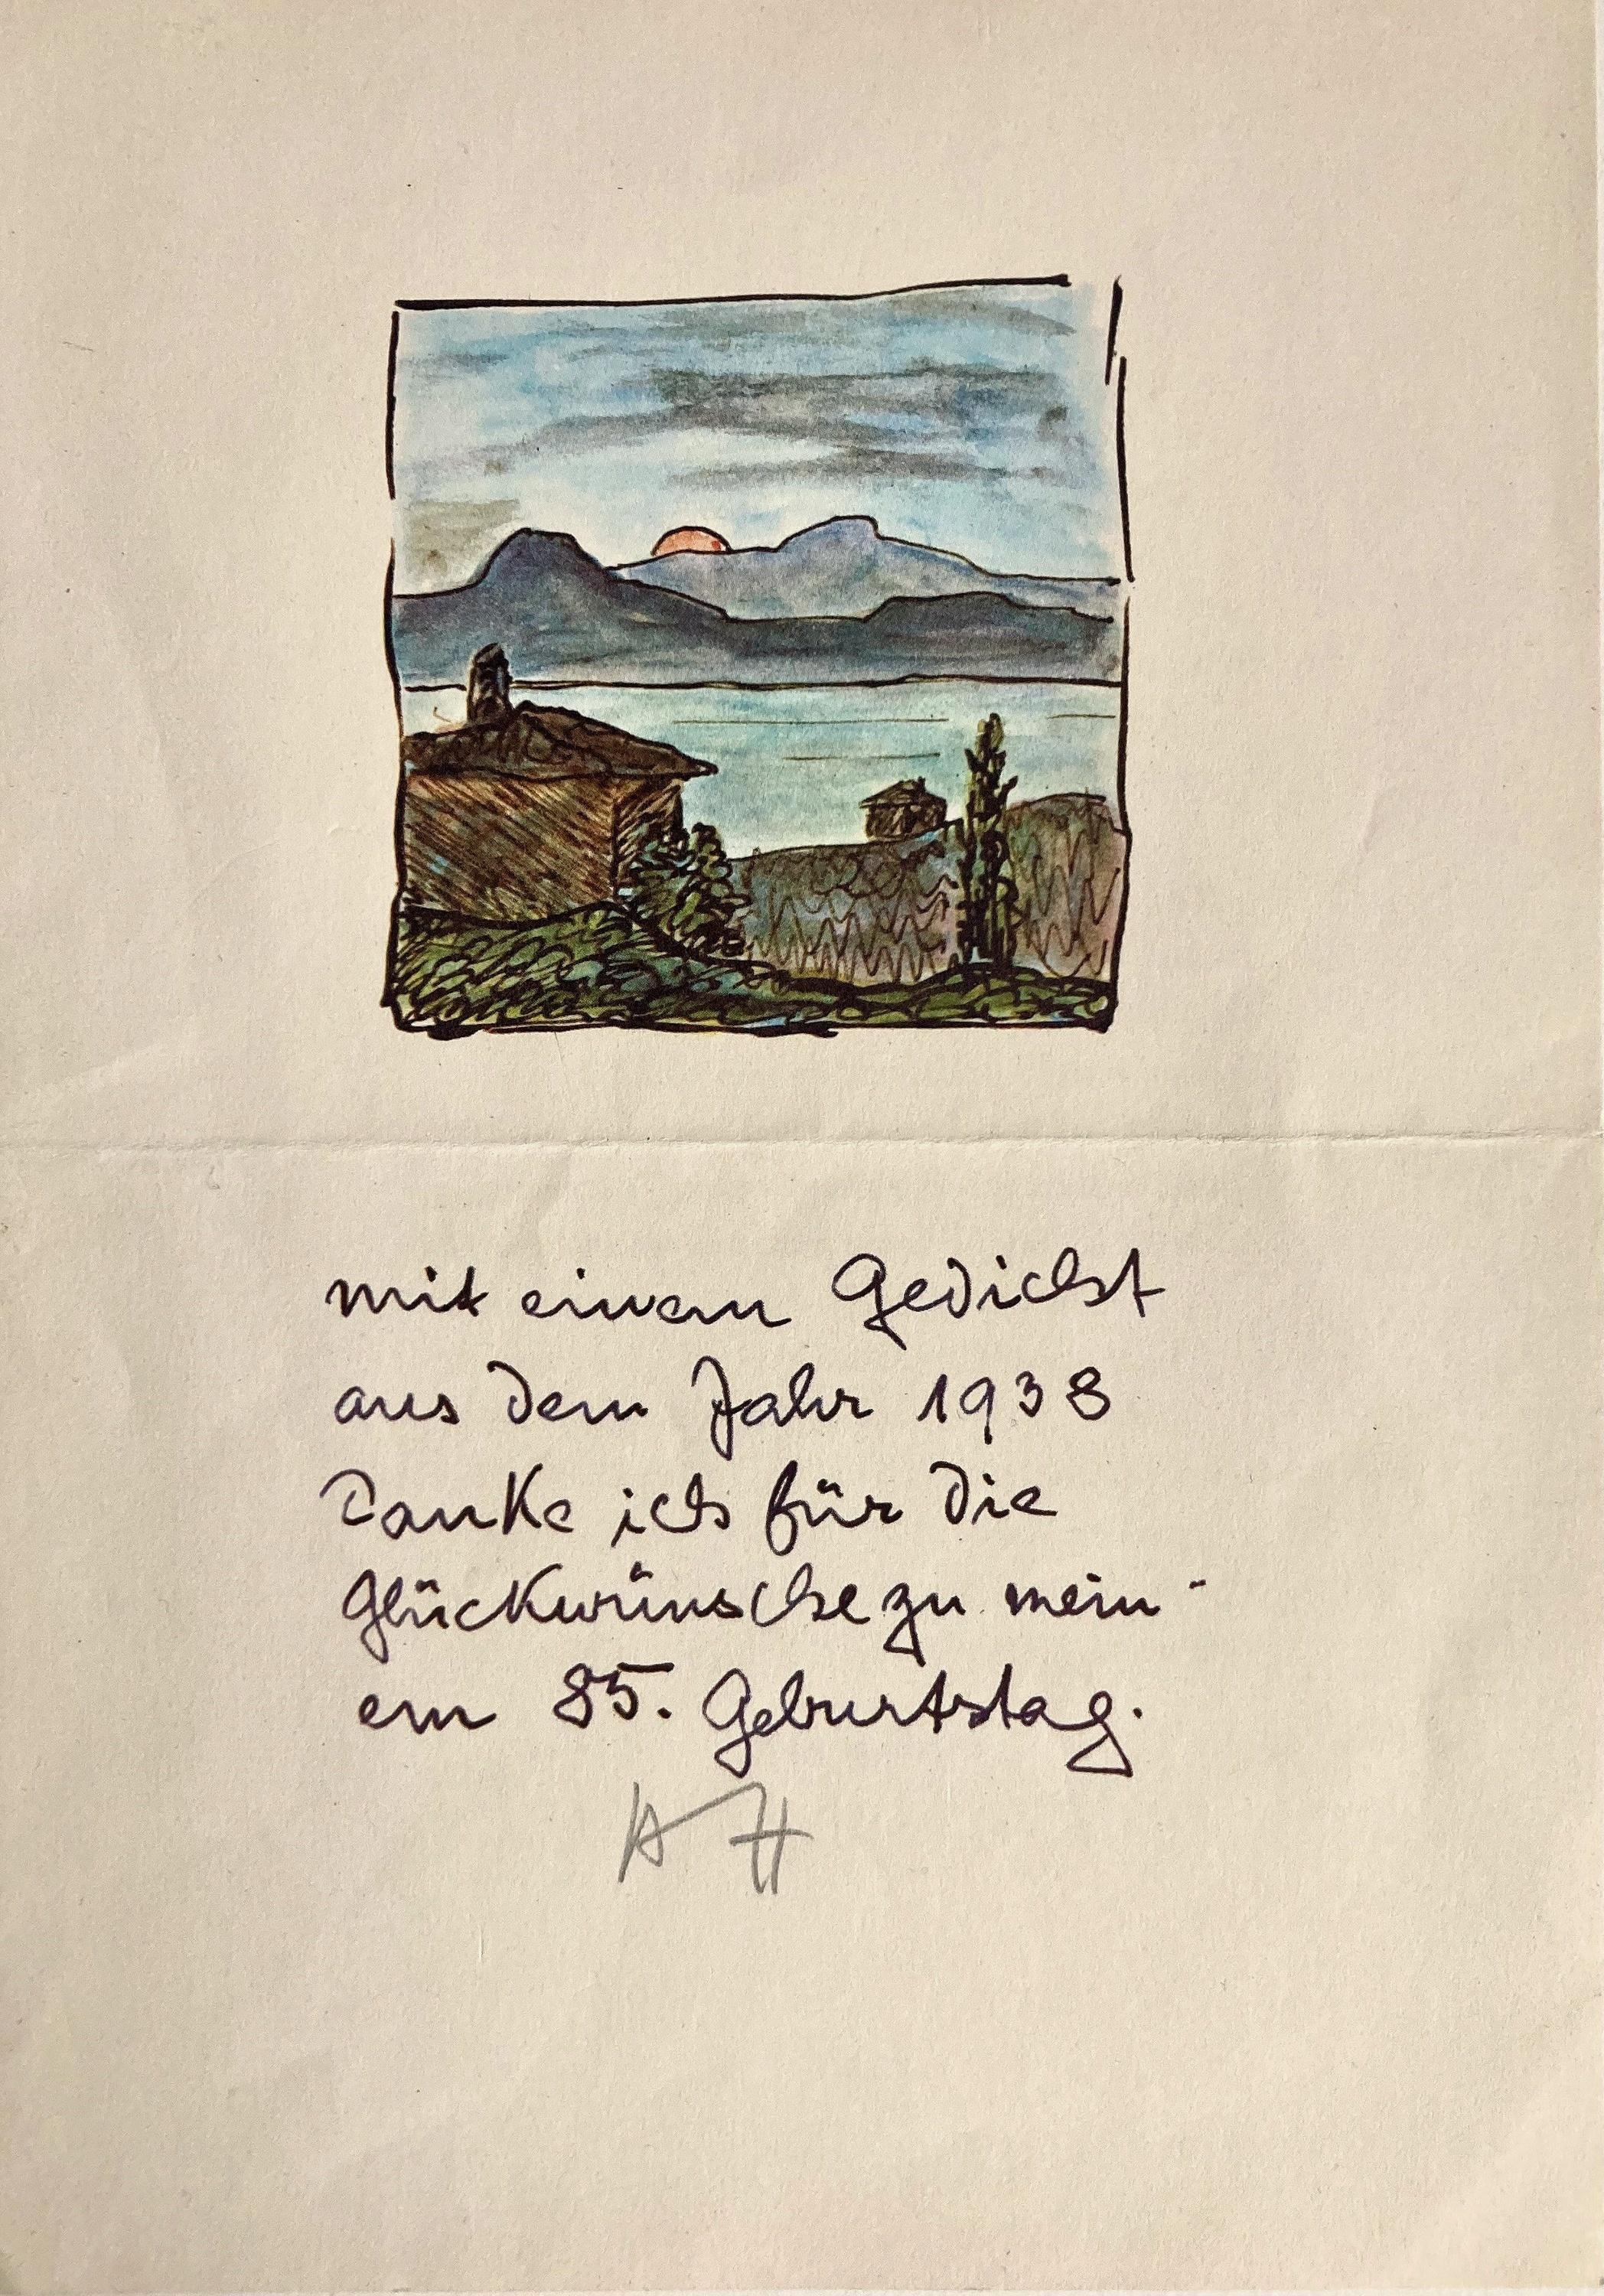 mit einem Gedicht
aus dem Jahr 1938
danke ich für die
Glückwünsche zu mein-
em 85. Geburtstag.